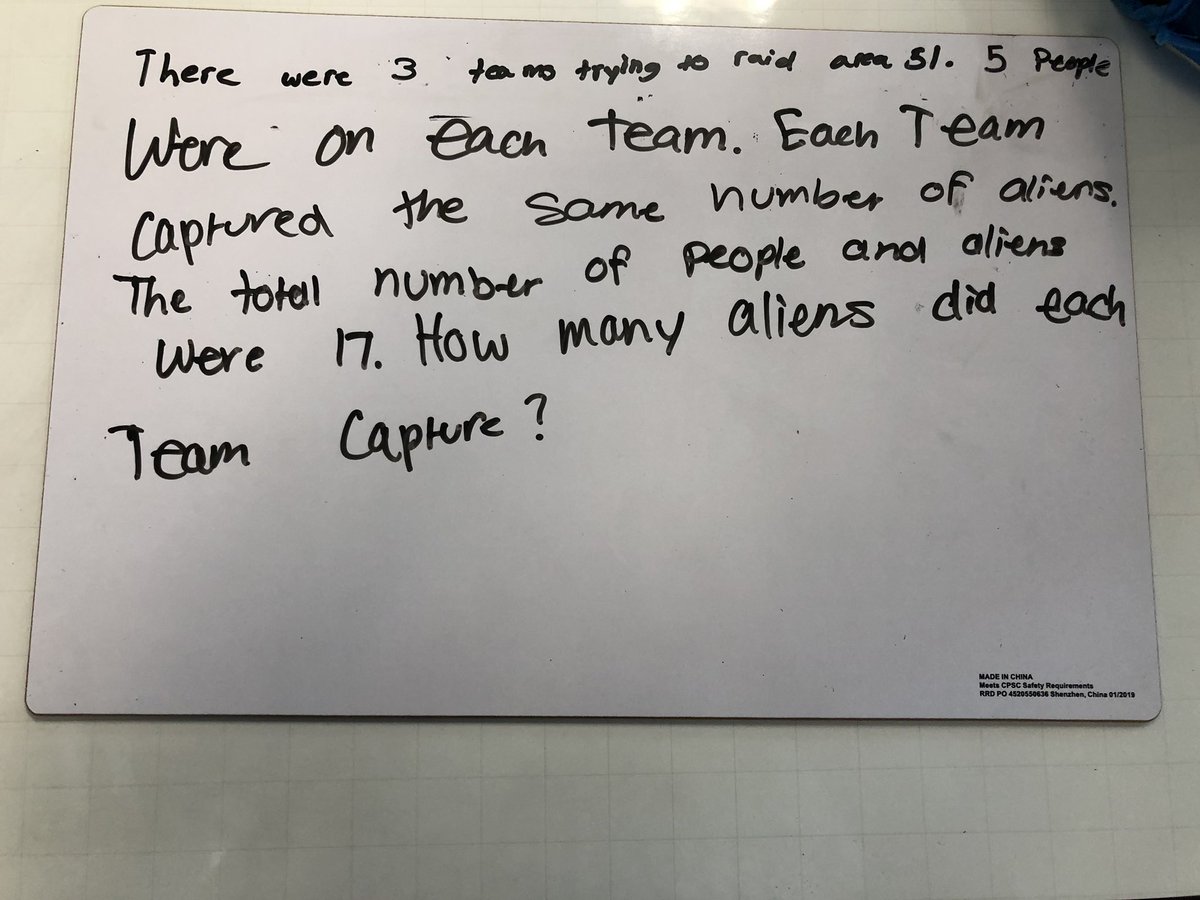 There were 3 teams trying to raid area 51. 5 People
Were on each team. Each Team
Captured the same number of aliens.
The total number of people and aliens
were 17. How many aliens did each
Team Capture?
MADE IN CHINA
Meets CPSC Safety Requirements
RRD PO 4520550636 Shenzhen, China 01/2019